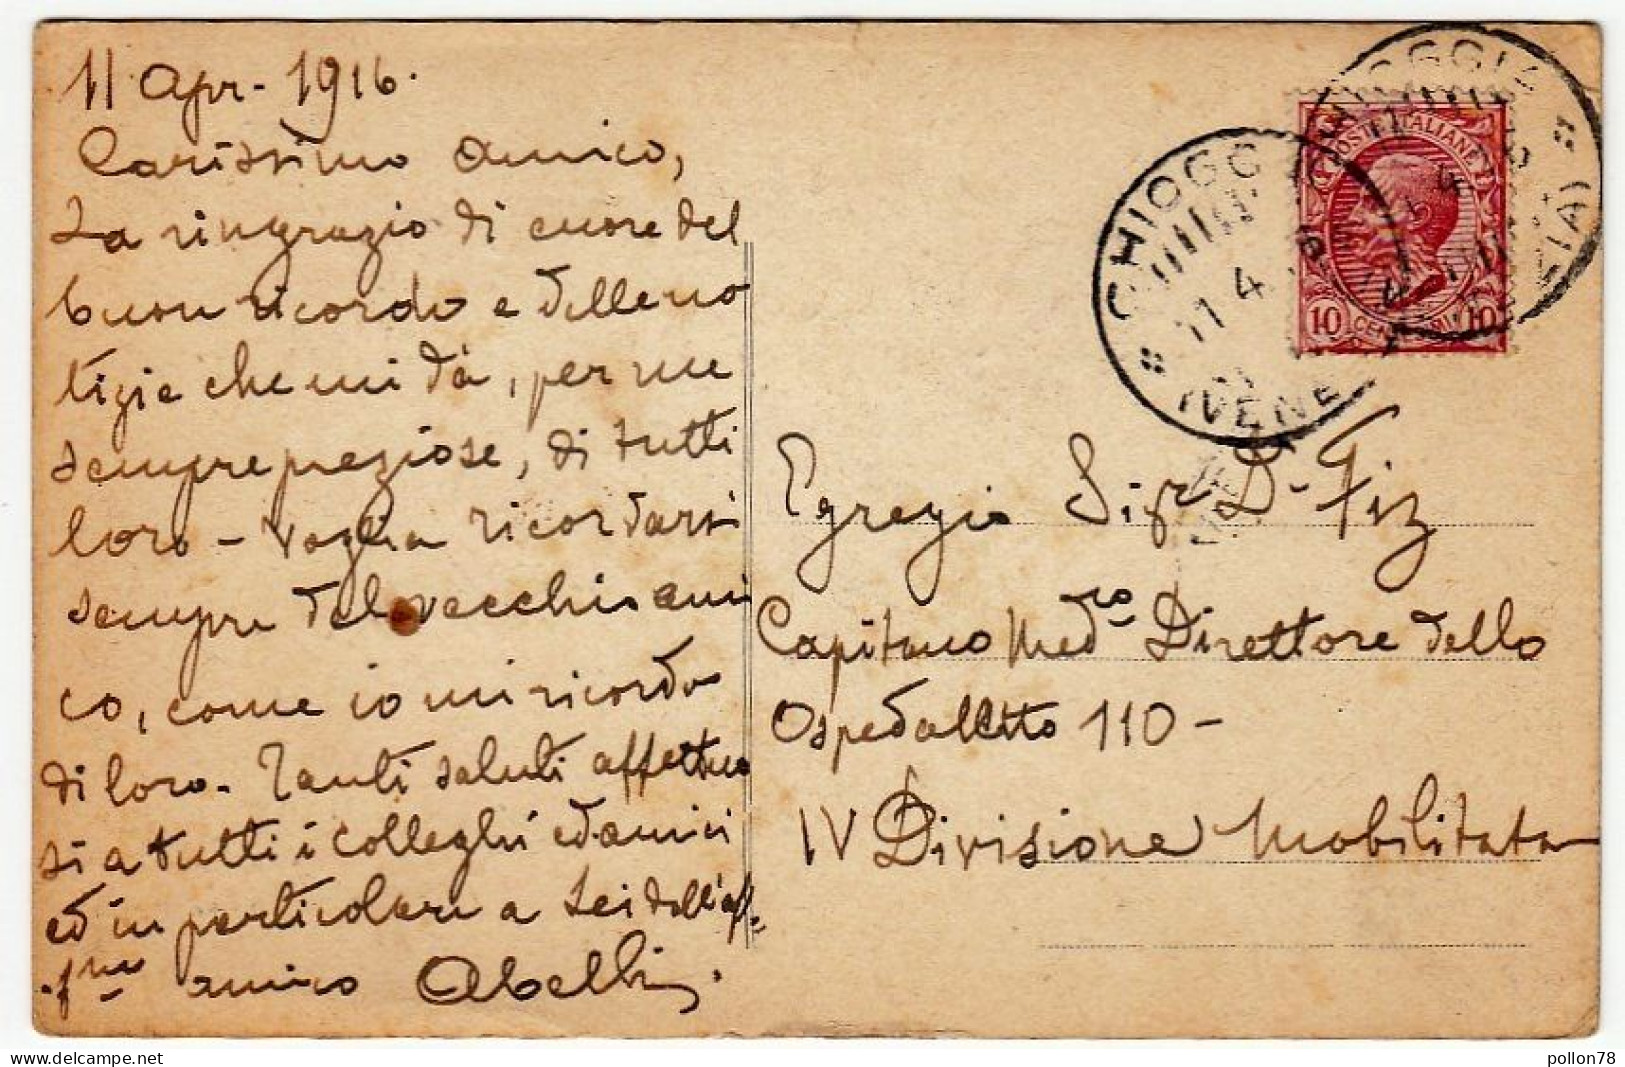 11 Apr- 1916.
Carissimo amico,
La ringrazio di cuore del
buon ricordo e delle no
tizie che mi dà, per me
sempre preziose, di tutti
loro - Voglia ricordarsi
sempre del vecchio ami
co, come io mi ricordo
di loro. Tanti saluti affettuo
si a tutti i colleghi ed amici
ed in particolare a Lei dall'aff.
mo amico Abelli
CHIOGG
11 4
(VENE
CHIOGGIA
ZIA)
POSTE ITALIANE
10 CENTESIMI 10
Egregio Sig. Dr Fiz
Capitano Medco Direttore dello
Ospedaletto 110 -
IV Divisione Mobilitata
pollon78